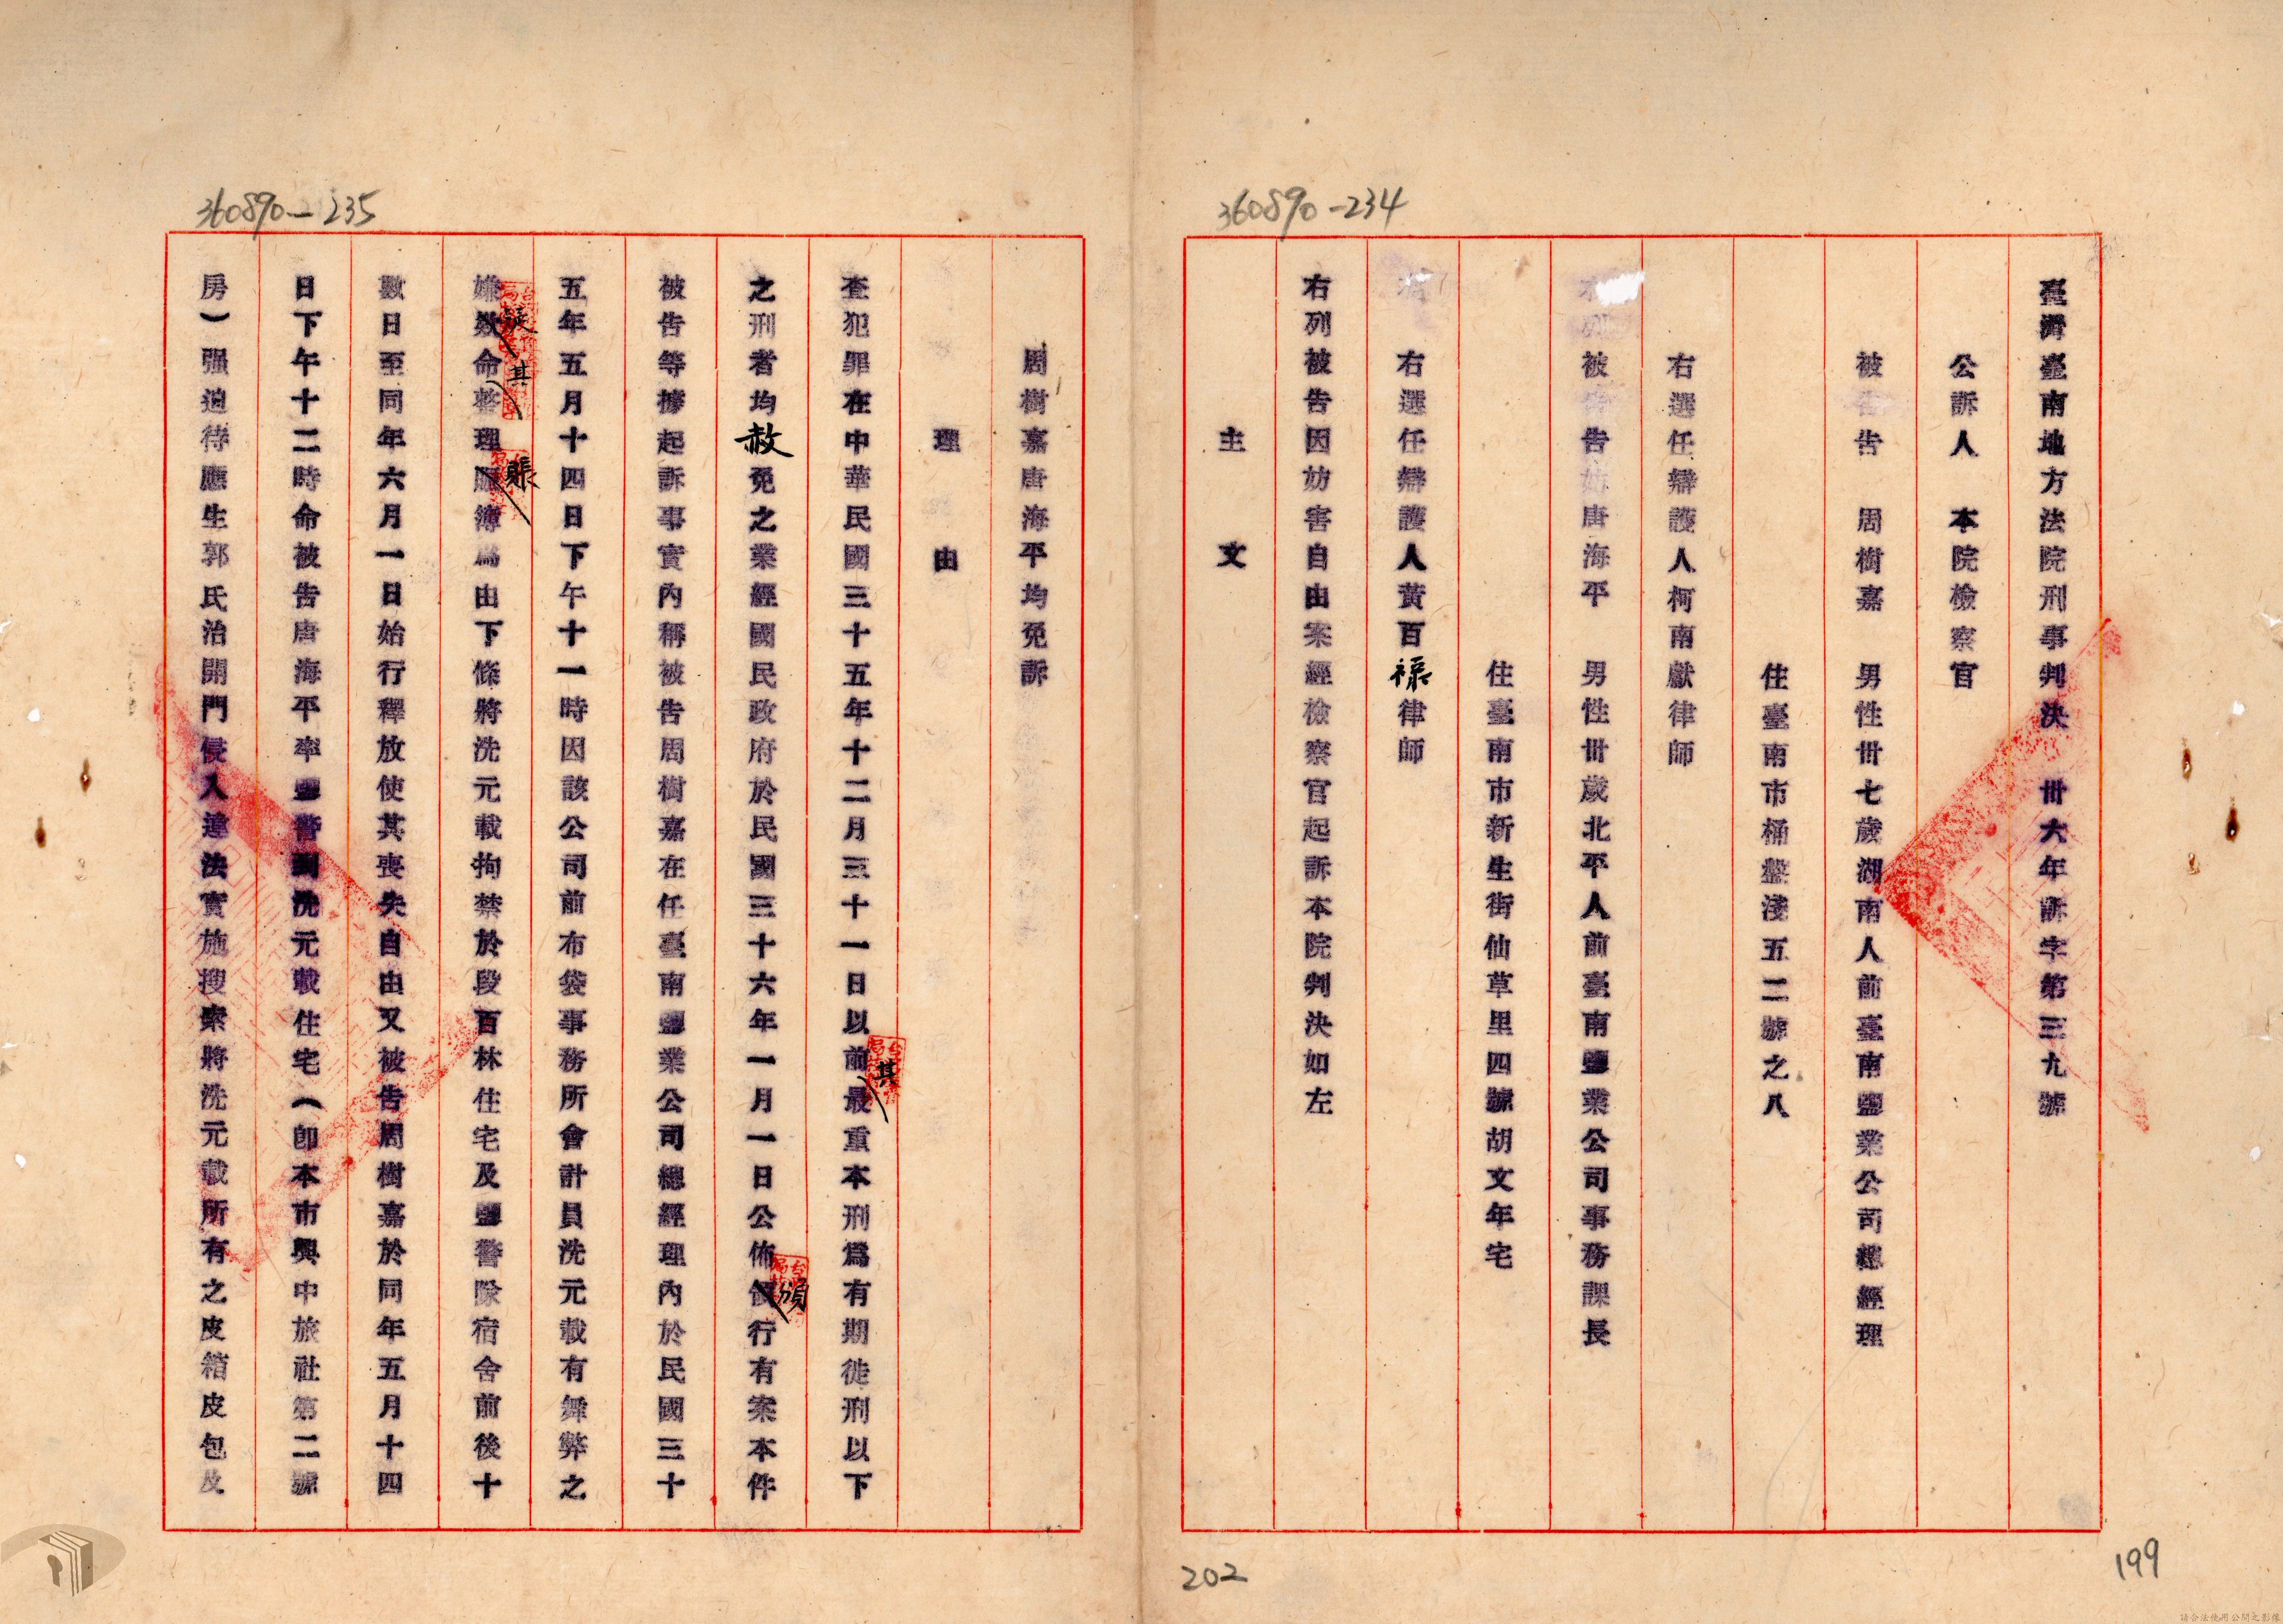 360890-234
臺灣臺南地方法院刑事判決　卅六年訴字第三九號
公訴人　本院檢察官
被告　周樹嘉　男性卅七歲湖南人前臺南鹽業公司總經理
住臺南市桶盤淺五二號之八
右選任辯護人柯南獻律師
被告　唐海平　男性卅歲北平人前臺南鹽業公司事務課長
住臺南市新生街仙草里四號胡文年宅
右選任辯護人黃百祿律師
右列被告因妨害自由案經檢察官起訴本院判決如左
主　文
199
360890-235
周樹嘉唐海平均免訴
理　由
查犯罪在中華民國三十五年十二月三十一日以前其最重本刑爲有期徒刑以下
之刑者均赦免之業經國民政府於民國三十六年一月一日公佈頒行有案本件
被告等據起訴事實內稱被告周樹嘉在任臺南鹽業公司總經理內於民國三十
五年五月十四日下午十一時因該公司前布袋事務所會計員洗元載有舞弊之
嫌疑命其整理賬簿爲由下條將洗元載拘禁於段百林住宅及鹽警隊宿舍前後十
數日至同年六月一日始行釋放使其喪失自由又被告周樹嘉於同年五月十四
日下午十二時命被告唐海平率鹽警到洗元載住宅（卽本市興中旅社第二號
房）强迫待應生郭氏治開門侵入違法實施搜索將洗元載所有之皮箱皮包及
202
請合法使用公開之影像